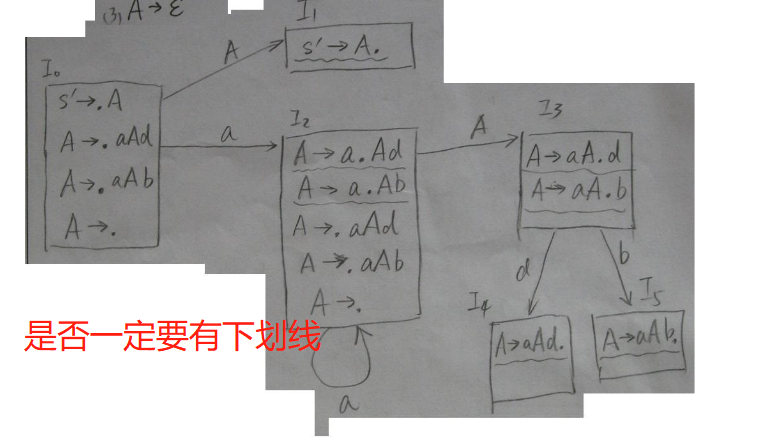 (3) A → ε
I₀
s' → . A
A → . aAd
A → . aAb
A → .
A
I₁
s' → A.
a
I₂
A → a . Ad
A → a . Ab
A → . aAd
A → . aAb
A → .
a
A
I3
A → aA . d
A → aA . b
d
b
I₄
A → aAd.
I₅
A → aAb.
是否一定要有下划线